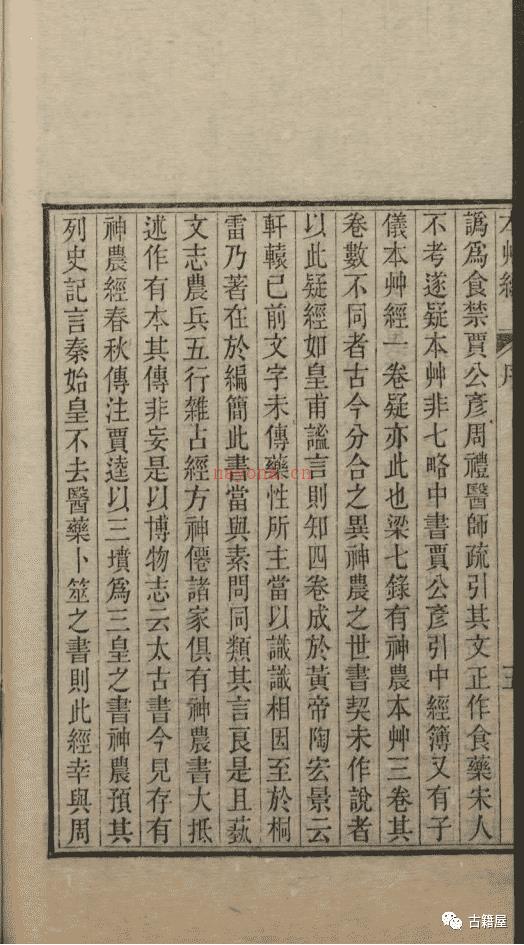 本艸經 序 五
譌爲食禁賈公彥周禮醫師疏引其文正作食藥宋人
不考遂疑本艸非七略中書賈公彥引中經簿又有子
儀本艸經一卷疑亦此也梁七錄有神農本艸三卷其
卷數不同者古今分合之異神農之世書契未作說者
以此疑經如皇甫謐言則知四卷成於黃帝陶宏景云
軒轅已前文字未傳藥性所主當以識識相因至於桐
雷乃著在於編簡此書當與素問同類其言良是且蓺
文志農兵五行雜占經方神僊諸家俱有神農書大抵
述作有本其傳非妄是以博物志云太古書今見存有
神農經春秋傳注賈逵以三墳爲三皇之書神農預其
列史記言秦始皇不去醫藥卜筮之書則此經幸與周
nayona.cn
古籍屋